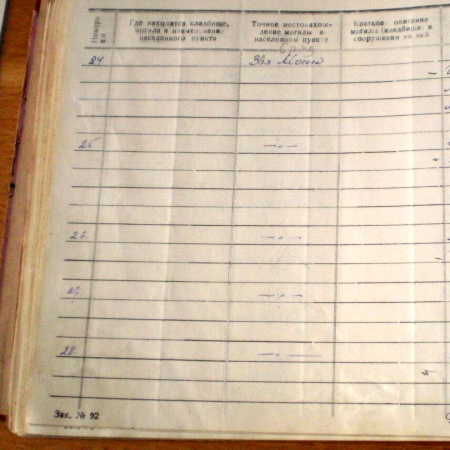 Номера п п
Где находится кладбище, могила и наименование населенного пункта
Точное местонахождение могилы в населенном пункте
Краткое описание могилы (кладбища) и сооружения на ней
24
25
— " —
26.
— " —
27.
— " —
28.
— " —
Зак. № 92